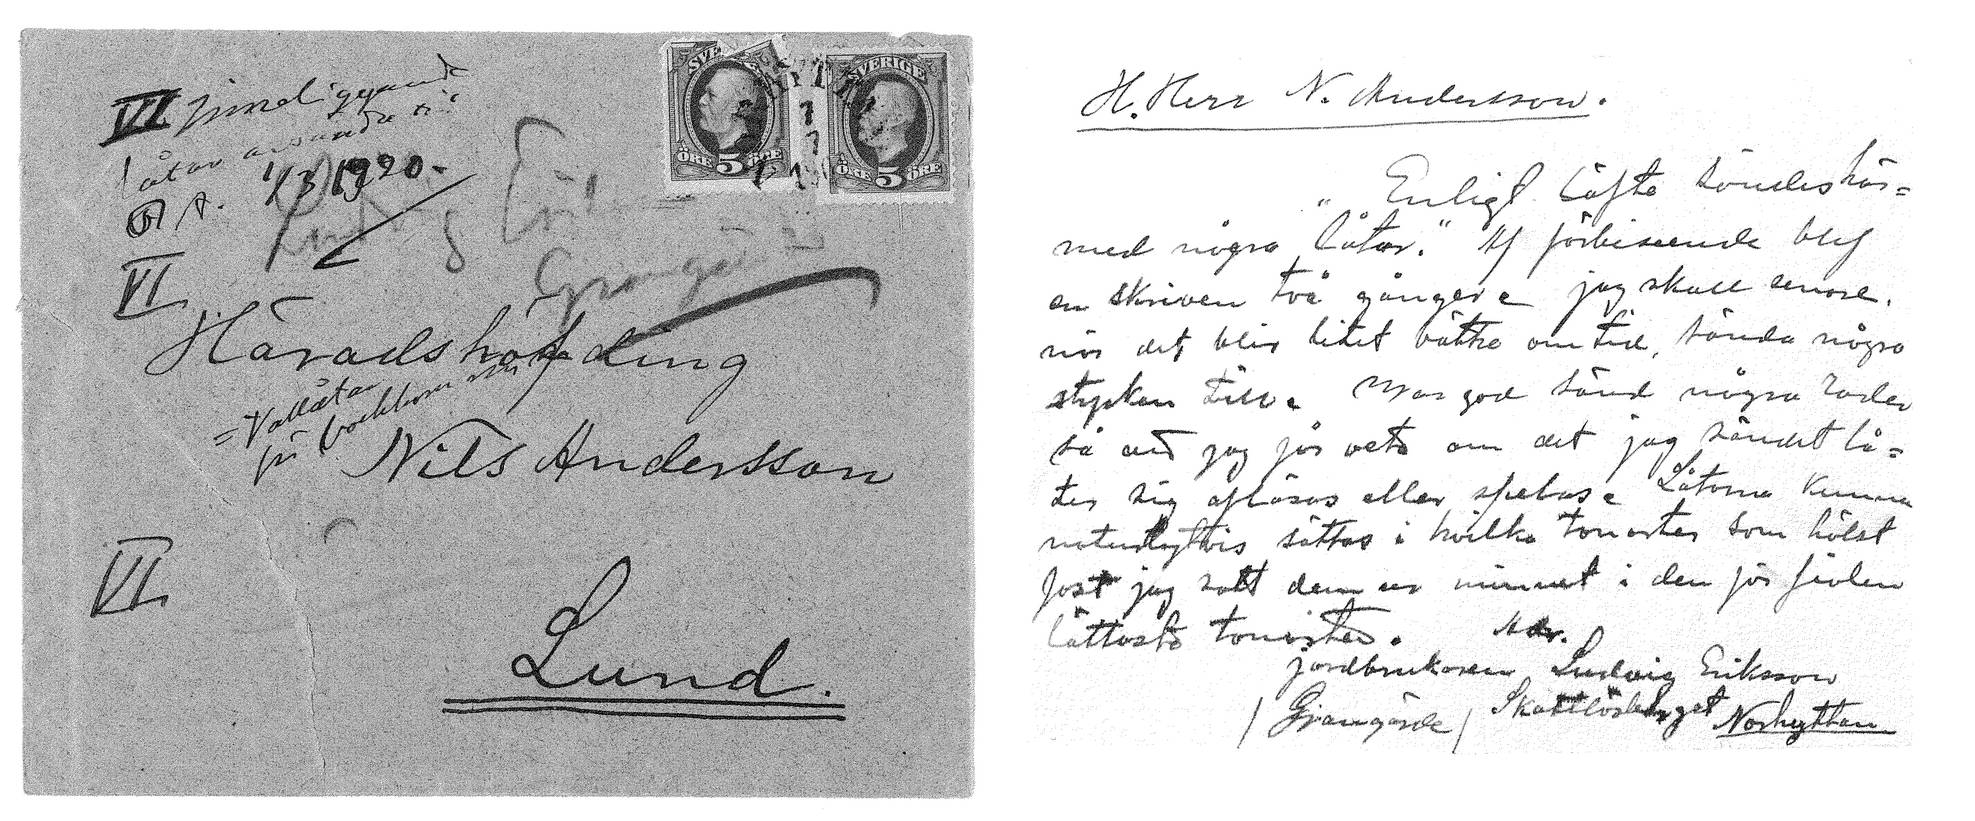 VI
låtar avsända till
O. A. 1/3 1920.
Ludvig Eriksson
Grangärde
VI
Häradshöfding
= Vallåtar
för bockhorn
Nils Andersson
VI
Lund.
SVERIGE
ÖRE 5 ÖRE
SVERIGE
ÖRE 5 ÖRE
H. Herr N. Andersson.
Enligt löfte sändes här=
med några "låtar." Af förbiseende blef
en skriven två gånger. jag skall senare.
när det blir litet bättre om tid, sända några
stycken till. Var god sänd några rader
så att jag får veta om det jag sändet lå=
ter sig afläsas eller spelas. Låtarna kunna
naturligtvis sättas i hvilka tonarter som hälst
fast jag satt dem ur minnet i den för fiolen
lättaste tonarten. Adr.
jordbrukaren Ludvig Eriksson
/Grangärde/ Skattlösberget Norhyttan